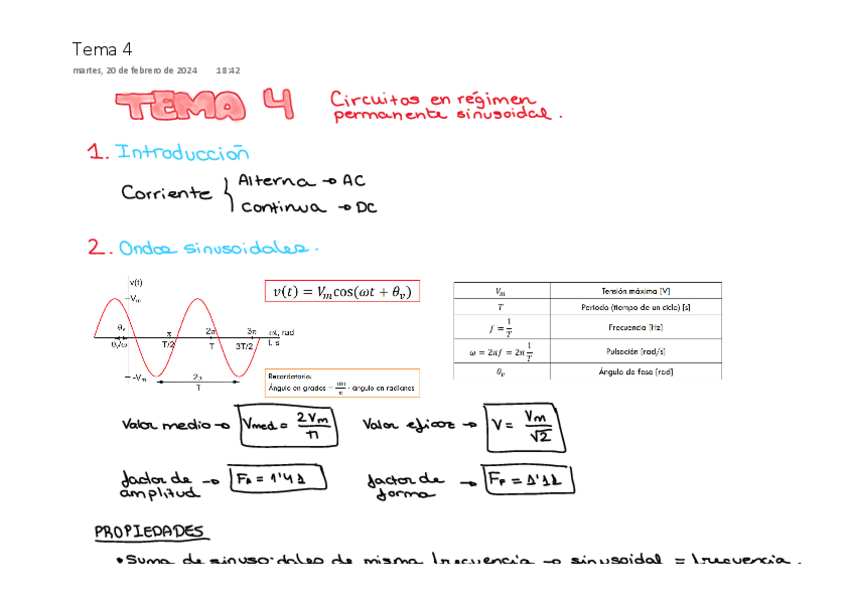 Tema 4
martes, 20 de febrero de 2024 18:42
TEMA 4 Circuitos en régimen
permanente sinusoidal.
1. Introducción
Corriente { Alterna → AC
Continua → DC
2. Ondas sinusoidales.
v(t)
Vm
θv
π 2π 3π ωt, rad
θv/ω T/2 T 3T/2 t, s
-Vm
2π
T
v(t) = Vm cos(ωt + θv)
Recordatorio:
Ángulo en grados = 180/π · ángulo en radianes
Vm Tensión máxima [V]
T Período (tiempo de un ciclo) [s]
f = 1/T Frecuencia [Hz]
ω = 2πf = 2π 1/T Pulsación [rad/s]
θv Ángulo de fase [rad]
Valor medio → Vmed = 2Vm/π Valor eficaz → V = Vm/√2
factor de amplitud → FA = 1'41 factor de forma → FF = 1'11
PROPIEDADES
• Suma de sinusoidales de misma frecuencia → sinusoidal = frecuencia.